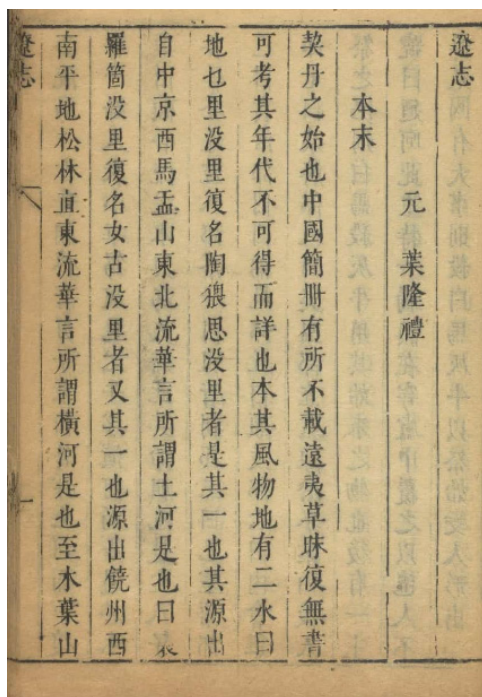 遼志
元 葉隆禮
本末
契丹之始也中國簡冊有所不載遠夷草昧復無書
可考其年代不可得而詳也本其風物地有二水曰
地乜里没里復名陶猥思没里者是其一也其源出
自中京西馬盂山東北流華言所謂土河是也曰裊
羅箇没里復名女古没里者又其一也源出饒州西
南平地松林直東流華言所謂橫河是也至木葉山
遼志